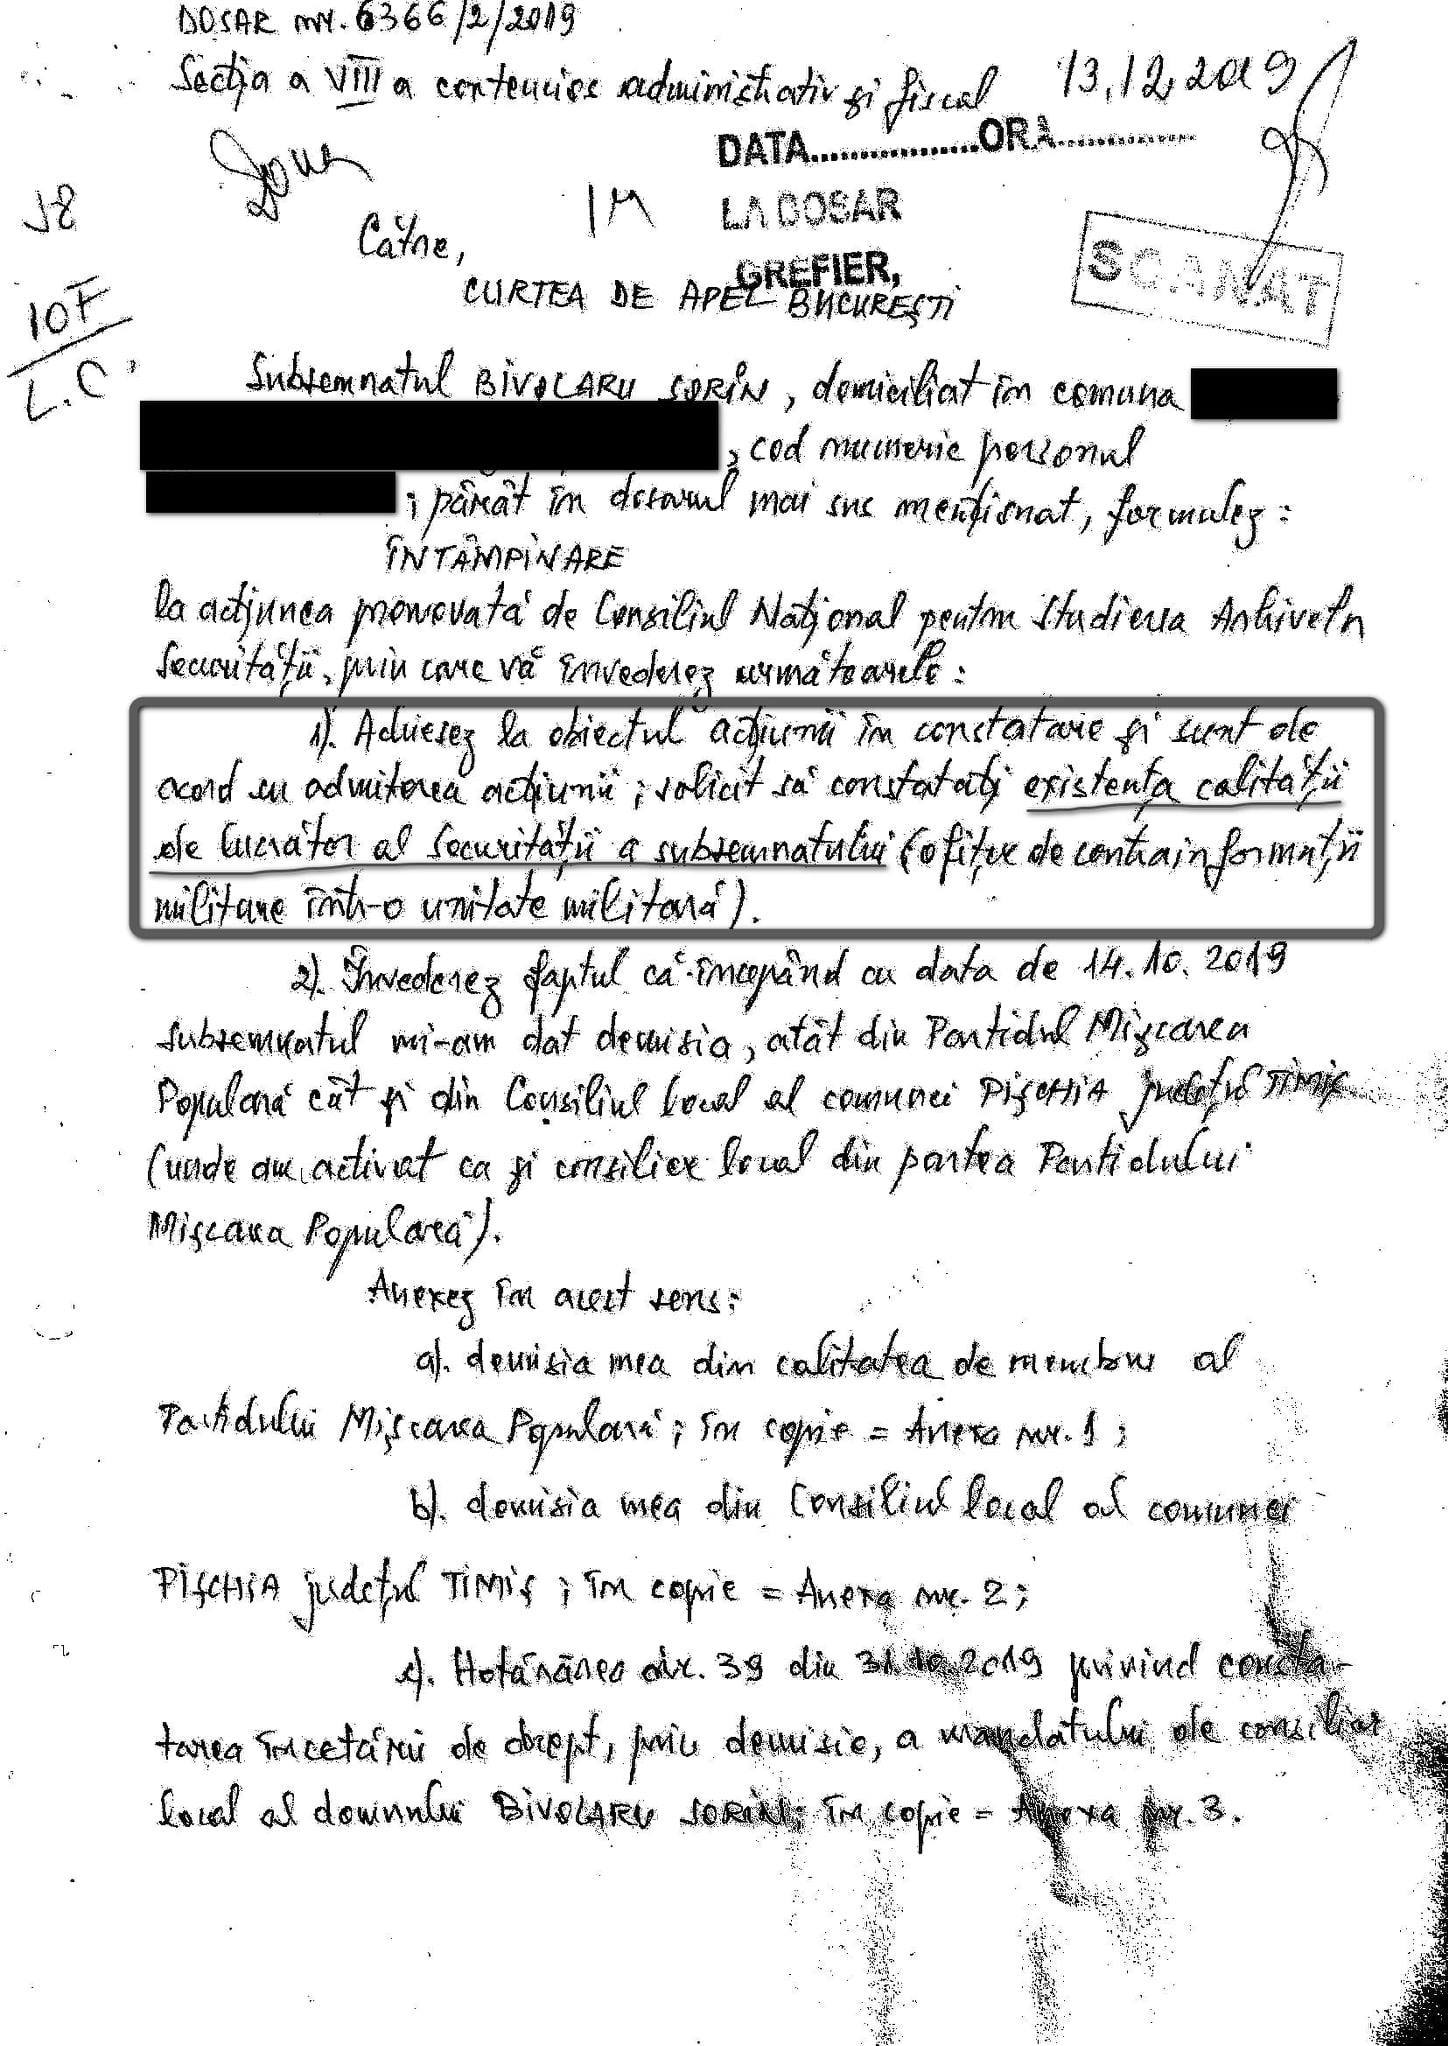 DOSAR nr. 6366/2/2019
Secția a VIII a contencios administrativ și fiscal 13.12.2019
DATA.................ORA..............
J8
1M
LA DOSAR
Către,
GREFIER,
SCANAT
CURTEA DE APEL BUCUREȘTI
10F
L.C.
Subsemnatul BIVOLARU SORIN, domiciliat în comuna
, cod numeric personal
; pârât în dosarul mai sus menționat, formulez:
ÎNTÂMPINARE
la acțiunea promovată de Consiliul Național pentru Studierea Arhivelor
Securității, prin care vă învederez următoarele:
1). Achiesez la obiectul acțiunii în constatare și sunt de
acord cu admiterea acțiunii; solicit să constatați existența calității
de lucrător al Securității a subsemnatului (ofițer de contrainformații
militare într-o unitate militară).
2). Învederez faptul că începând cu data de 14.10.2019
subsemnatul mi-am dat demisia, atât din Partidul Mișcarea
Populară cât și din Consiliul local al comunei PIȘCHIA județul TIMIȘ
(unde am activat ca și consilier local din partea Partidului
Mișcarea Populară).
Anexez în acest sens:
a). demisia mea din calitatea de membru al
Partidului Mișcarea Populară; în copie = Anexa nr. 1;
b). demisia mea din Consiliul local al comunei
PIȘCHIA județul TIMIȘ; în copie = Anexa nr. 2;
c). Hotărârea nr. 39 din 31.10.2019 privind consta-
tarea încetării de drept, prin demisie, a mandatului de consilier
local al domnului BIVOLARU SORIN; în copie = Anexa nr. 3.